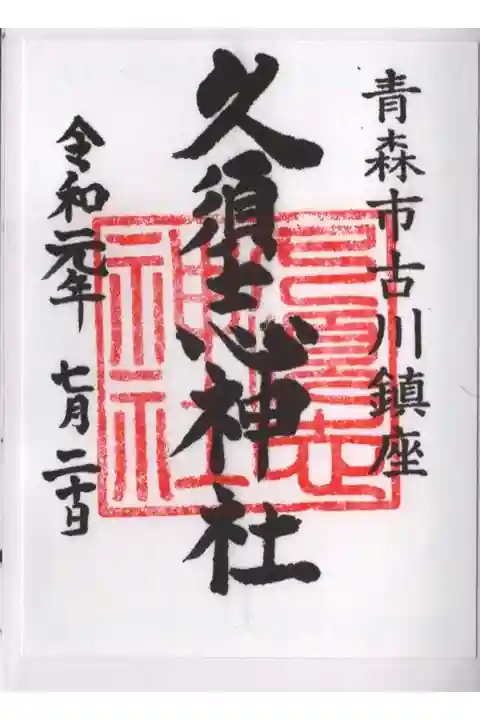 青森市古川鎮座
久須志神社
令和元年 七月二十日